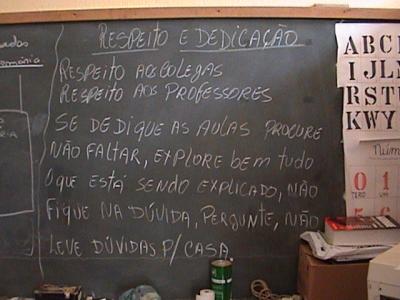 RESPEITO E DEDICAÇÃO
RESPEITO AOS COLEGAS
RESPEITO AOS PROFESSORES
SE DEDIQUE AS AULAS PROCURE
NÃO FALTAR, EXPLORE BEM TUDO
O QUE ESTÁ SENDO EXPLICADO, NÃO
FIQUE NA DÚVIDA, PERGUNTE, NÃO
LEVE DÚVIDAS P/ CASA
ABC
IJL
RSTU
KWY
NÚM
0 1